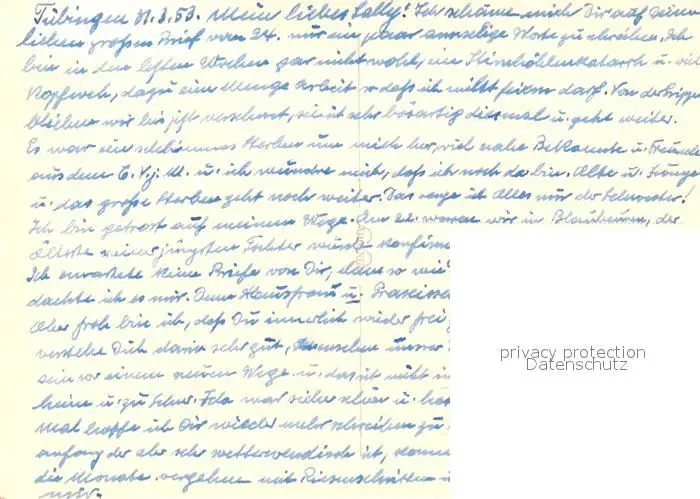 Tübingen 31.3.53. Mein liebes Sally! Ich schäme mich Dir auf Deinen
lieben großen Brief vom 24. nur ein paar armselige Worte zu schreiben. Ich
bin in den letzten Wochen gar nicht wohl, ein Stirnhöhlenkatarrh u. viel
Kopfweh, dazu eine Menge Arbeit so daß ich nicht feiern darf. Von der Grippe
blieben wir bis jetzt verschont, sie ist sehr bösartig diesmal u. geht weiter.
Es war ein schlimmes Sterben um mich her, viel nahe Bekannte u. Freunde
aus dem C.V.j.M. u. ich wundre mich, daß ich noch da bin. Alte u. Junge
u. das große Sterben geht noch weiter. Das sage ich Alles nur der Schwester!
Ich bin getrost auf meinem Wege. Am 22. waren wir in Blaubeuren, der
Älteste meiner jüngsten Tochter wurde konfirm
Ich erwartete keine Briefe von Dir, eben so wie
dachte ich es mir. Denn Hausfrau u. Praxis
Aber froh bin ich, daß Du innerlich wieder frei
verstehe Dich darin sehr gut, Menschen unsrer
sein vor einem neuen Wege u. das ist nicht
heim u. zu Ida war sicher schön u.
Mal hoffe ich Dir wieder mehr schreiben zu
anfang der aber sehr wetterwendisch ist,
die Monate vergehen mit Riesenschritten
mir.
privacy protection
Datenschutz